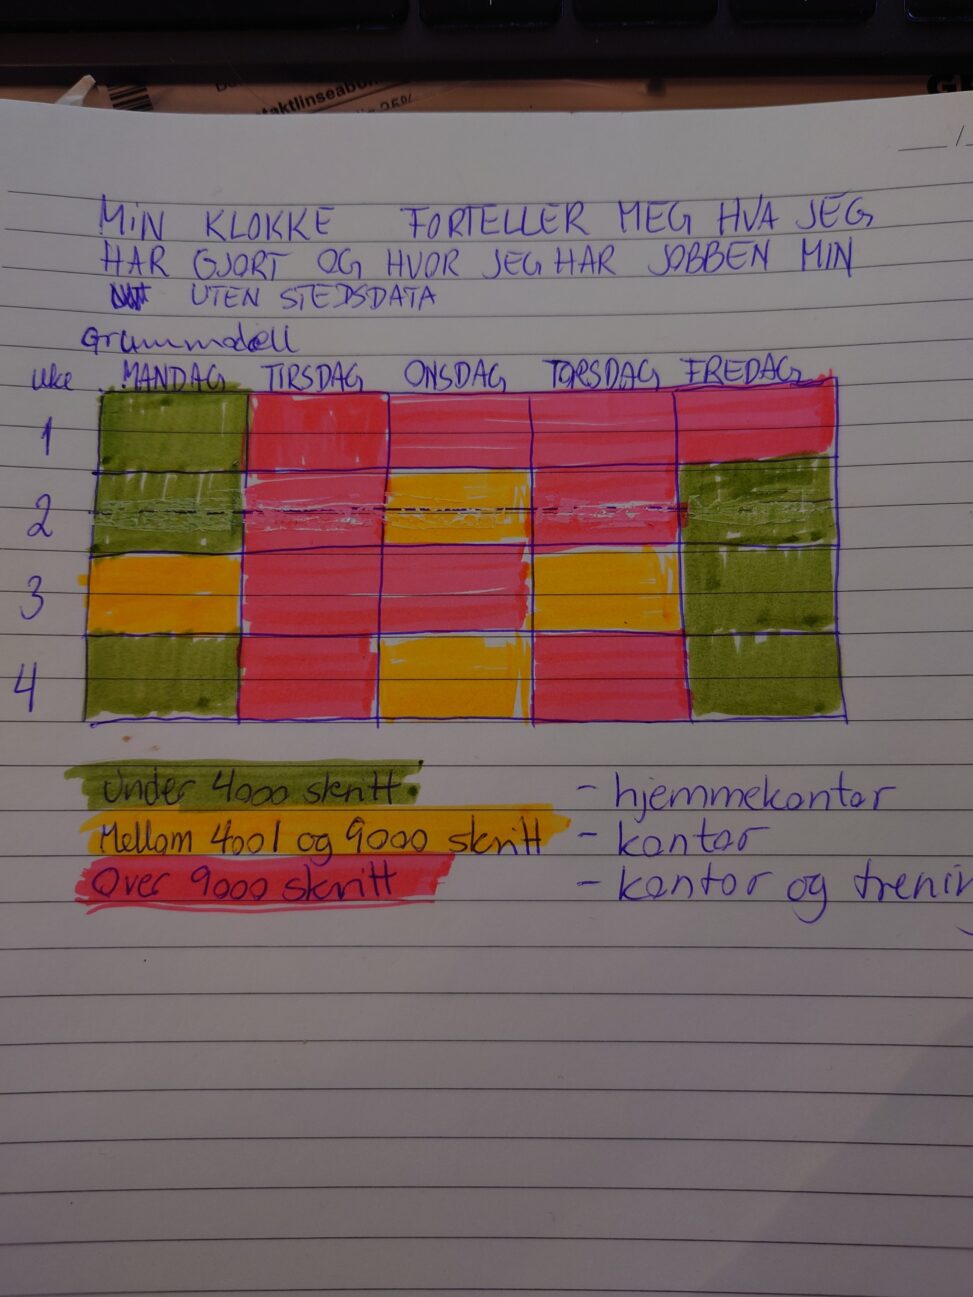 aktlinseabon
25%
G
MIN KLOKKE FORTELLER MEG HVA JEG
HAR GJORT OG HVOR JEG HAR JOBBEN MIN
UTEN STEDSDATA
uke MANDAG TIRSDAG ONSDAG TORSDAG FREDAG
1
2
3
4
Under 4000 skritt - hjemmekontor
Mellom 4001 og 9000 skritt - kontor
Over 9000 skritt - kontor og trenin